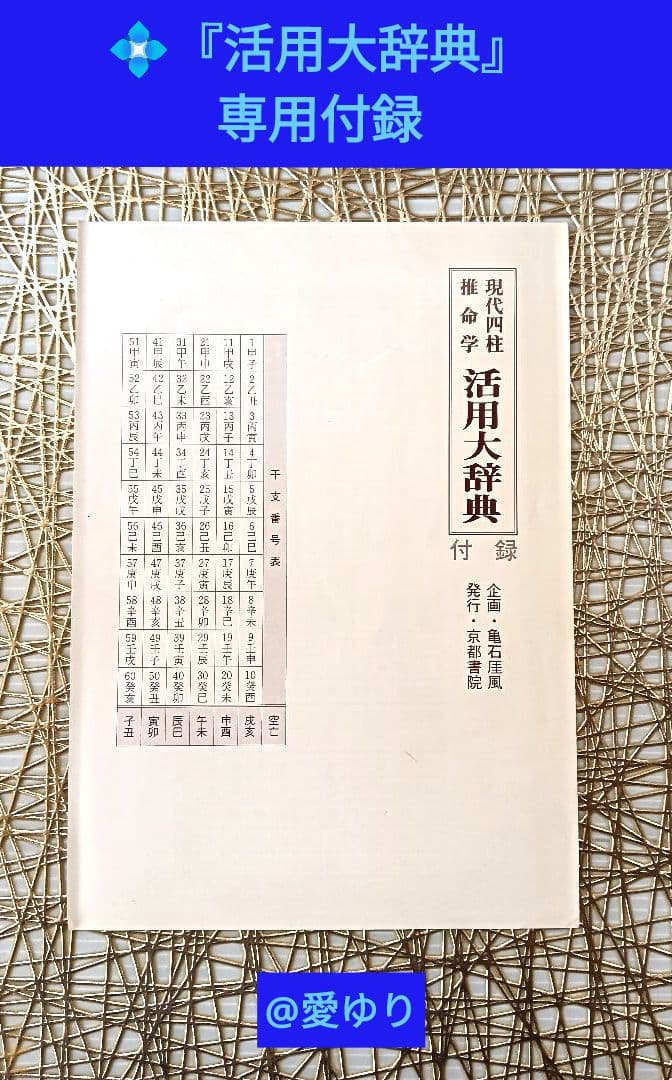 『活用大辞典』
専用付録
現代四柱
推命学
活用大辞典
付録
企画・亀石厓風
発行・京都書院
干支番号表 空亡
1甲子 2乙丑 3丙寅 4丁卯 5戊辰 6己巳 7庚午 8辛未 9壬申 10癸酉 戌亥
11甲戌 12乙亥 13丙子 14丁丑 15戊寅 16己卯 17庚辰 18辛巳 19壬午 20癸未 申酉
21甲申 22乙酉 23丙戌 24丁亥 25戊子 26己丑 27庚寅 28辛卯 29壬辰 30癸巳 午未
31甲午 32乙未 33丙申 34丁酉 35戊戌 36己亥 37庚子 38辛丑 39壬寅 40癸卯 辰巳
41甲辰 42乙巳 43丙午 44丁未 45戊申 46己酉 47庚戌 48辛亥 49壬子 50癸丑 寅卯
51甲寅 52乙卯 53丙辰 54丁巳 55戊午 56己未 57庚申 58辛酉 59壬戌 60癸亥 子丑
@愛ゆり